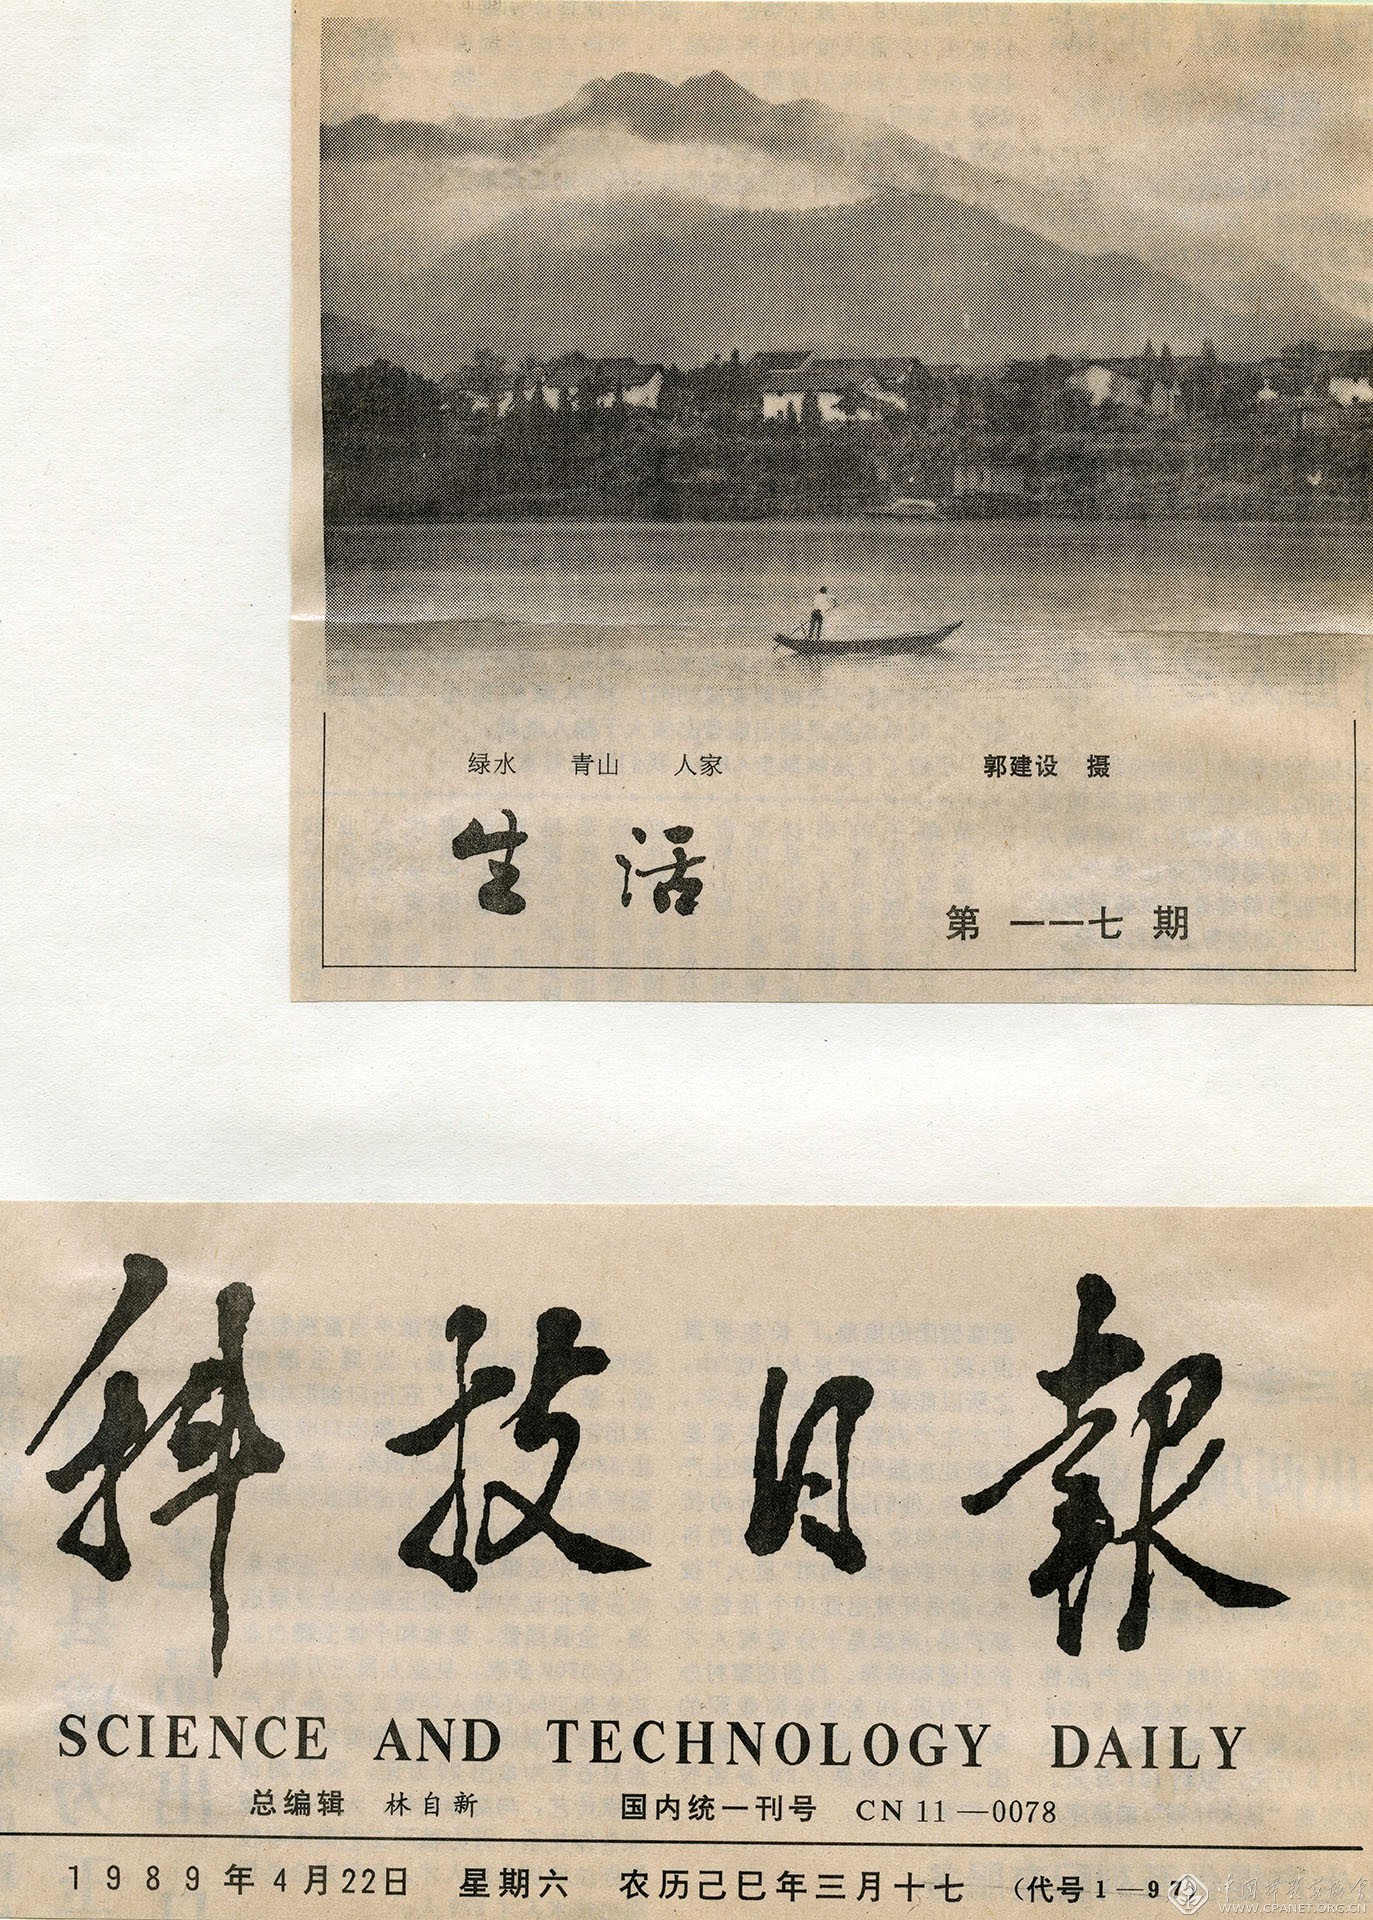 绿水 青山 人家 郭建设 摄
生活
第 一一七 期
科技日報
SCIENCE AND TECHNOLOGY DAILY
总编辑 林自新 国内统一刊号 CN 11—0078
1989年4月22日 星期六 农历己巳年三月十七 (代号1—97)
中国摄影家协会
WWW.CPANET.ORG.CN